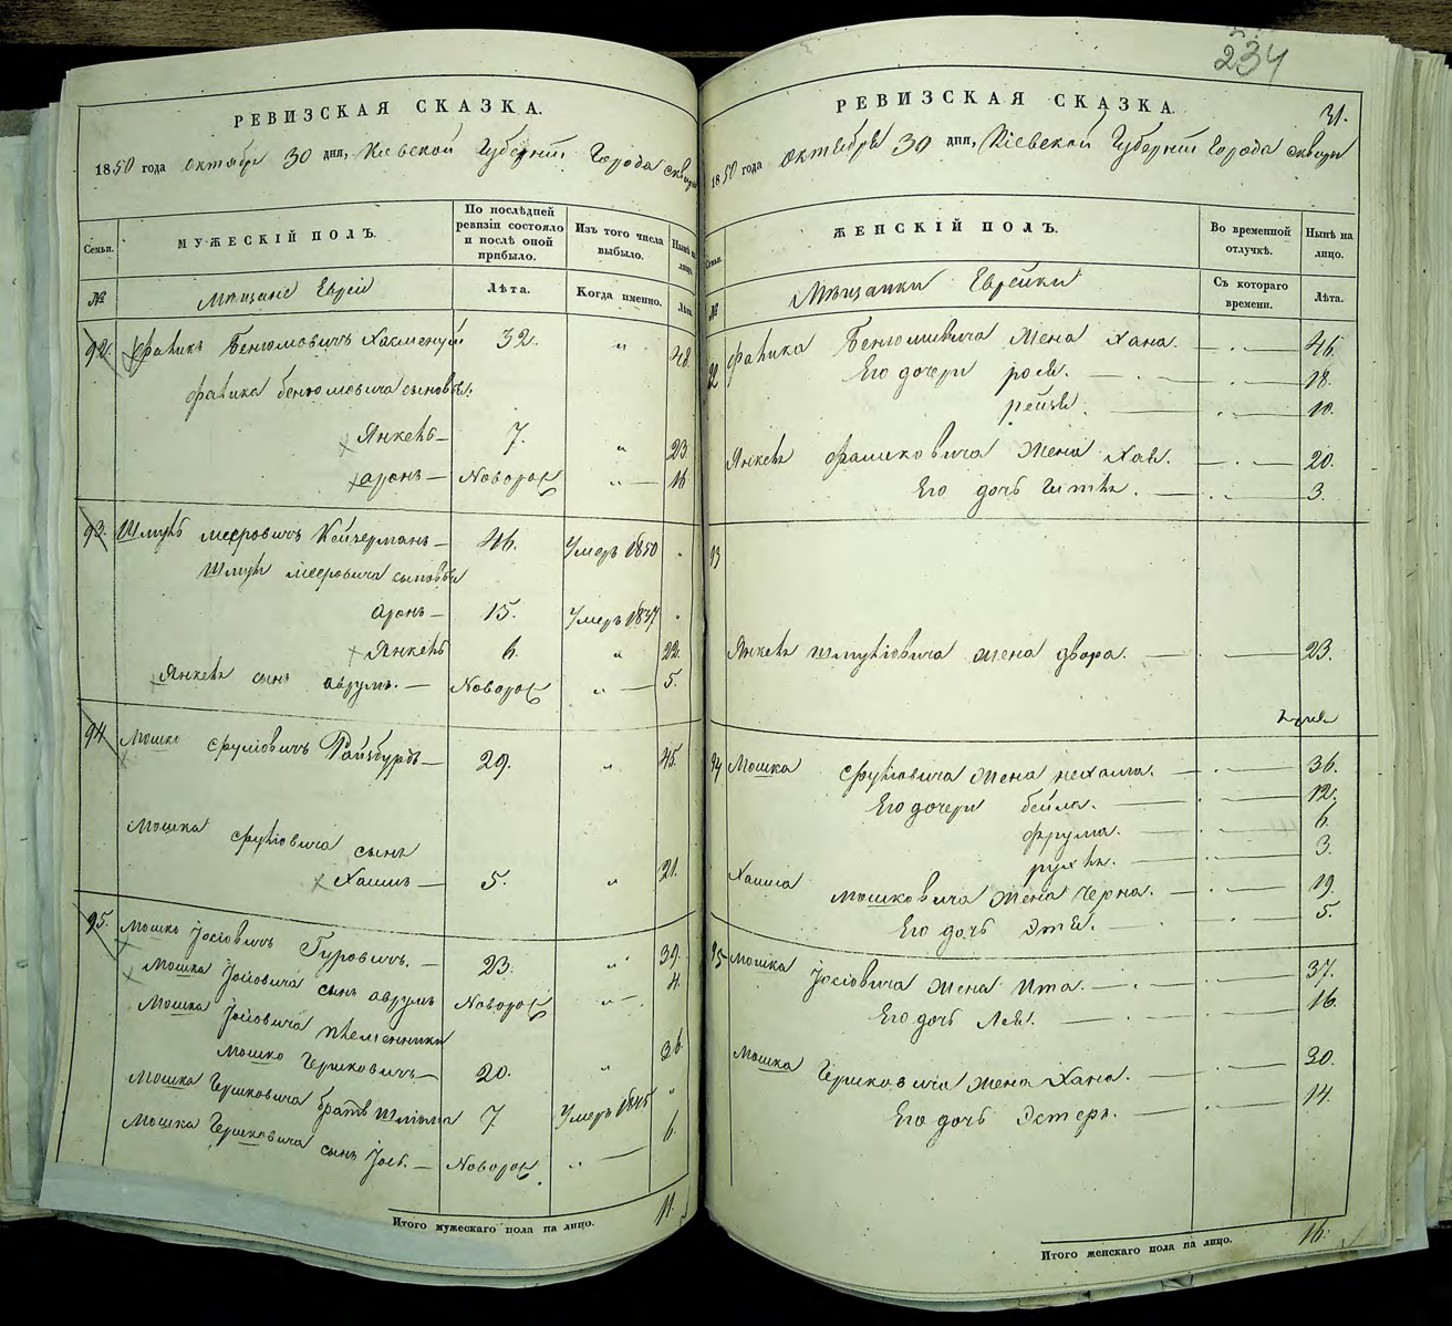 234
РЕВИЗСКАЯ СКАЗКА.
1850 года октября 30 дня, Кіевской Губерніи Города Сквиры
Семьи.
МУЖЕСКІЙ ПОЛЪ.
По послѣдней ревизіи состояло и послѣ оной прибыло.
Изъ того числа выбыло.
Нынѣ на лицо.
№
Мѣщане Евреи
Лѣта.
Когда именно.
Лѣта.
92.
Беніомовичъ
32.
"
48.
Беніомовича сыновья:
Янкель
7.
"
23.
Аронъ
Новорож
"
16
93.
Шмуль Мееровичъ Кейзерманъ
46.
Умеръ 1850
Шмуля Мееровича сыновья
Аронъ
15.
Умеръ 1837
Янкель
6.
"
22.
Янкеля сынъ Аврумъ.
Новорож
"
5.
94.
Мошко Сруліовичъ Райзбурдъ
29.
"
45.
Мошка Сруліовича сынъ
Хаимъ
5.
"
21.
95.
Мошко Іосіовичъ Гуровичъ.
23.
"
39.
Мошка Іосіовича сынъ Аврумъ
Новорож
"
4.
Мошка Іосіовича племянники
Мошко Гершковичъ
20.
"
36
Мошка Гершковича братъ Шліома
7.
Умеръ 1845
"
Мошка Гершковича сынъ Іось.
Новорож.
"
6.
Итого мужескаго пола на лицо.
11.
РЕВИЗСКАЯ СКАЗКА.
31.
1850 года октября 30 дня, Кіевской Губерніи Города Сквиры
Семьи.
ЖЕНСКІЙ ПОЛЪ.
Во временной отлучкѣ.
Нынѣ на лицо.
№
Мѣщанки Еврейки
Съ котораго времени.
Лѣта.
92
Беніомовича жена Хана.
46.
Его дочери Рося.
18.
Рейзя.
10.
Янкеля жена Хая.
20.
Его дочь Гитля.
3.
93
Янкеля Шмуліовича жена Двора.
23.
94
Мошка Сруліовича жена Нехама.
36.
Его дочери Бейла.
12.
Фрума.
6.
Рухля.
3.
Хаима Мошковича жена Черна.
19.
Его дочь Этя.
5.
95
Мошка Іосіовича жена Ита.
37.
Его дочь Лея.
16.
Мошка Гершковича жена Хана.
30.
Его дочь Эстеръ.
14.
Итого женскаго пола на лицо.
16.